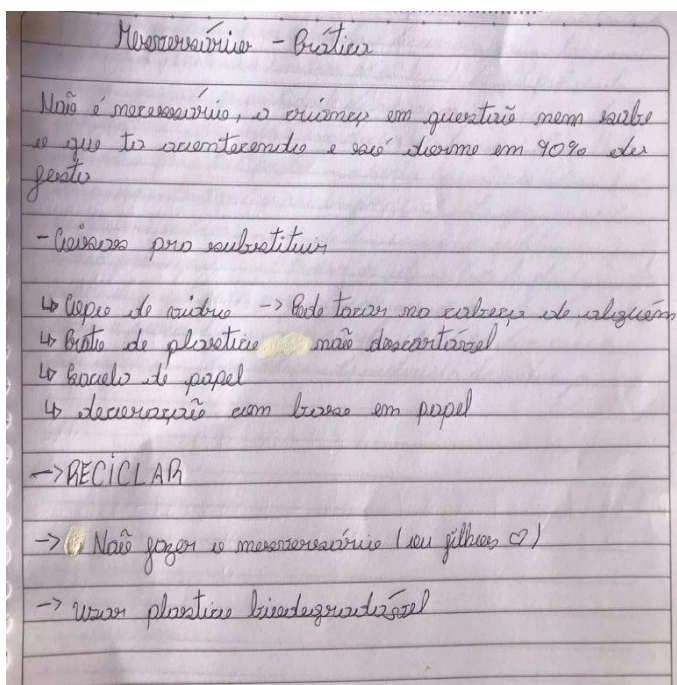 Mesversário - Prática
Não é necessário, a criança em questão nem sabe
o que ta acontecendo e só dorme em 90% da
festa
- Coisas pra substituir
↳ Copo de vidro -> Pode tacar na cabeça de alguém
↳ Prato de plastico não descartável
↳ de papel
↳ decoração com base em papel
-> RECICLAR
-> Não fazer o mesversário (ou filhos ♡)
-> usar plastico biodegradável